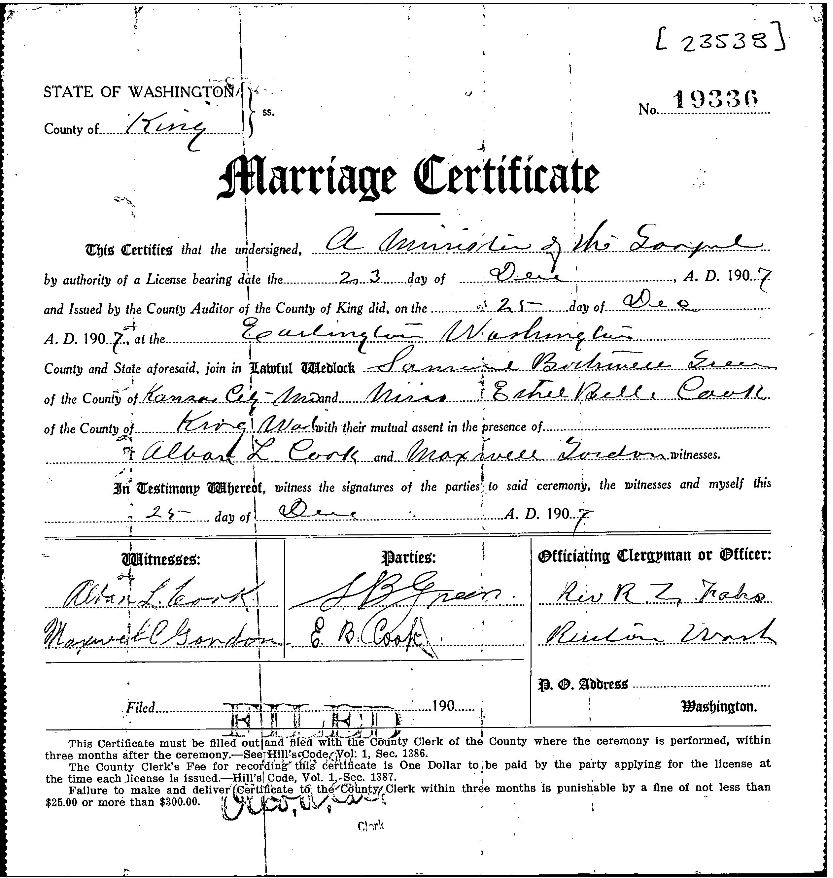 [23538]
STATE OF WASHINGTON } ss.
No. 19336
County of King
Marriage Certificate
This Certifies that the undersigned, A Minister of the Gospel
by authority of a License bearing date the 23 day of Dec , A. D. 1907
and Issued by the County Auditor of the County of King did, on the 25 day of Dec
A. D. 1907, at the Earlington Washington
County and State aforesaid, join in Lawful Wedlock Samuel Bothwell Green
of the County of Kansas City Mo and Miss Ethel Belle Cook
of the County of King Wash with their mutual assent in the presence of
Alban L Cook and Maxwell Gordon witnesses.
In Testimony Whereof, witness the signatures of the parties to said ceremony, the witnesses and myself this
25 day of Dec A. D. 1907
Witnesses: Parties: Officiating Clergyman or Officer:
Alban L. Cook S B Green Rev R. Z. Fahs
Maxwell C Gordon E B. Cook Renton Wash
P. O. Address
Filed 190 Washington.
FILED
This Certificate must be filled out and filed with the County Clerk of the County where the ceremony is performed, within
three months after the ceremony.—See Hill's Code, Vol. 1, Sec. 1386.
The County Clerk's Fee for recording this certificate is One Dollar to be paid by the party applying for the license at
the time each license is issued.—Hill's Code, Vol. 1, Sec. 1387.
Failure to make and deliver Certificate to the County Clerk within three months is punishable by a fine of not less than
$25.00 or more than $300.00.
Clerk